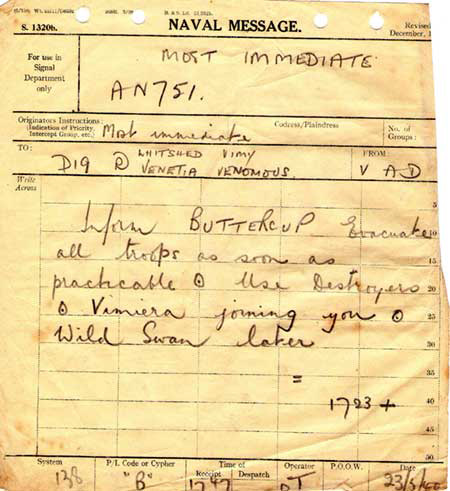 NAVAL MESSAGE.
S. 1320b.
Revised
December, 1
For use in
Signal
Department
only
MOST IMMEDIATE
AN751.
Originators Instructions:
(Indication of Priority,
Intercept Group, etc.)
Most immediate
Codress/Plaindress
No. of
Groups:
TO:
FROM:
D19 R WHITSHED VIMY
VENETIA VENOMOUS.
V A D
Write
Across
5
Inform BUTTERCUP Evacuate
10
all troops as soon as
15
practicable ⊙ Use Destroyers
20
⊙ Vimiera joining you ⊙
25
Wild Swan later
30
=
35
1723 +
40
45
50
System
P/L Code or Cypher
Time of
Receipt
Despatch
Operator
P.O.O.W.
Date
138
"B"
1747
23/5/40